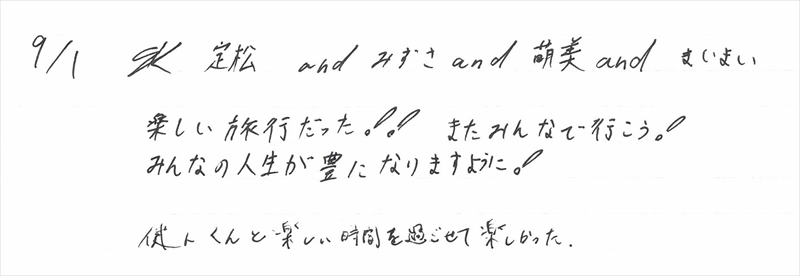 9/1 定松 and みずさ and 萌美 and まいまい
楽しい旅行だった!! またみんなで行こう!
みんなの人生が豊になりますように!
健人くんと楽しい時間を過ごせて楽しかった.